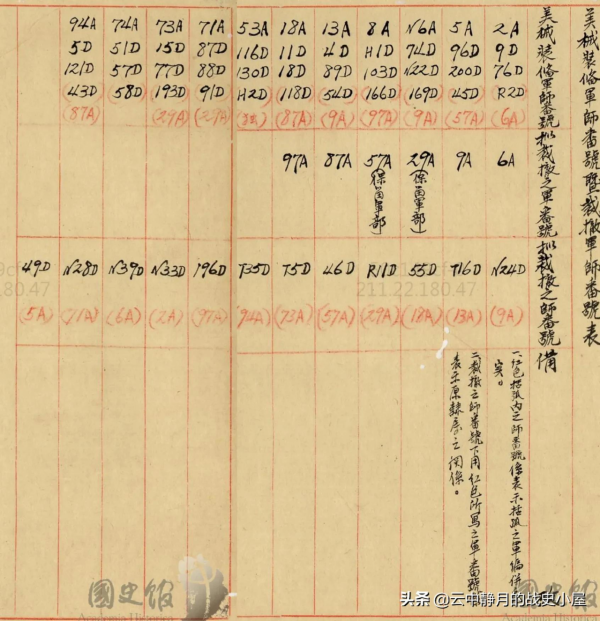 美械裝俻軍師番號暨裁撤軍師番號表
美械裝俻軍師番號
拟裁撤之軍番號
拟裁撤之師番號
備
2A
9D
76D
R2D
(6A)
5A
96D
200D
45D
(57A)
N6A
74D
N22D
169D
(9A)
8A
H1D
103D
166D
(97A)
13A
4D
89D
54D
(9A)
18A
11D
18D
118D
(87A)
53A
116D
130D
H2D
71A
87D
88D
91D
(29A)
73A
15D
77D
193D
(29A)
74A
51D
57D
58D
94A
5D
121D
43D
(87A)
6A
9A
29A
(保留軍部)
57A
(保留軍部)
87A
97A
N24D
(9A)
T16D
(13A)
55D
(18A)
R11D
(29A)
46D
(57A)
T5D
(73A)
T35D
(94A)
196D
(97A)
N33D
(2A)
N39D
(6A)
N28D
(71A)
49D
(5A)
一、红色括弧内之師番號係表示括弧之軍編併
二、裁撤之師番號下用红色所寫之軍番號
表示原隸屬之関係。
211.22.180.47
國史館
Academia Historica
头条 @云中静月的战史小屋